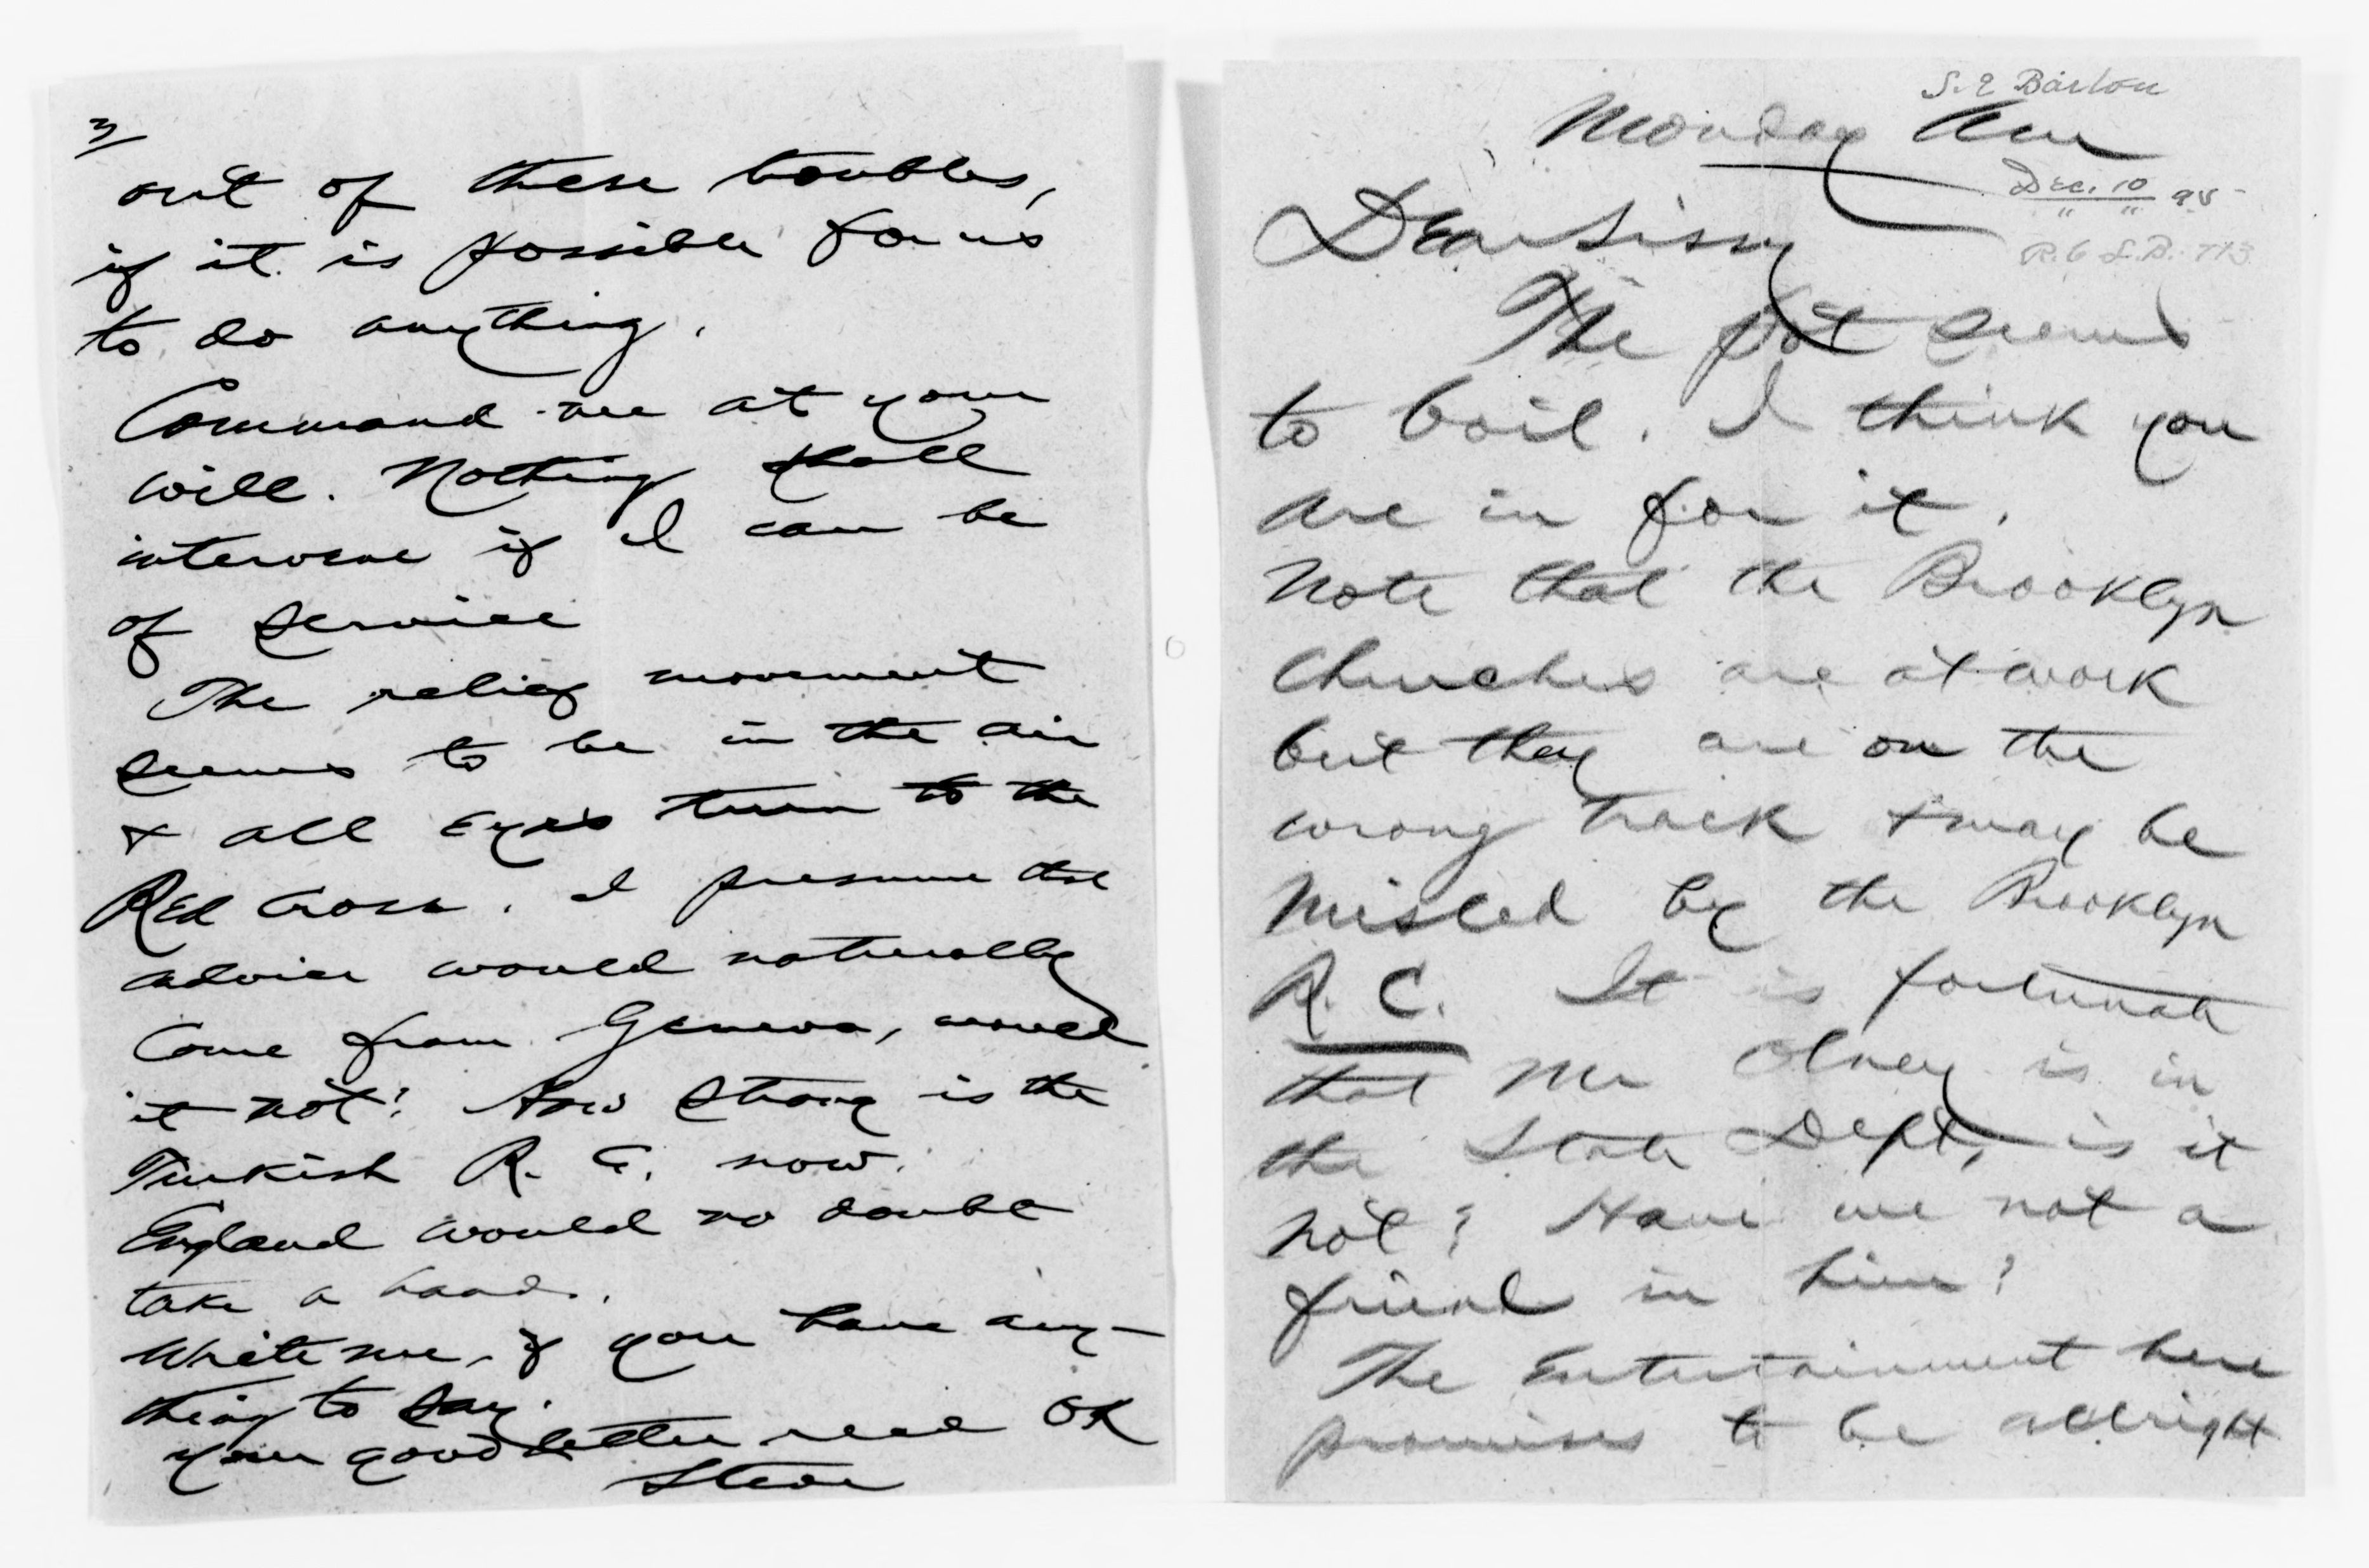 3
out of these troubles,
if it is possible for us
to do anything.
Command me at your
will. Nothing shall
intervene if I can be
of service
The relief movement
seems to be in the air
& all eyes turn to the
Red Cross. I presume the
advice would naturally
come from Geneva, would
it not? How strong is the
Turkish R. C. now.
England would no doubt
take a hand.
Write me, if you have any-
thing to say.
your good letter recd OK
Steve
S. E Barton
Monday Am
Dec. 10 95
" "
Dear Sissy
The pot seems
to boil. I think you
are in for it.
Note that the Brooklyn
Churches are at work
but they are on the
wrong track & may be
misled by the Brooklyn
R. C. It is fortunate
that Mr Olney is in
the State Dept, is it
not? Have we not a
friend in him?
The Entertainment here
promises to be allright